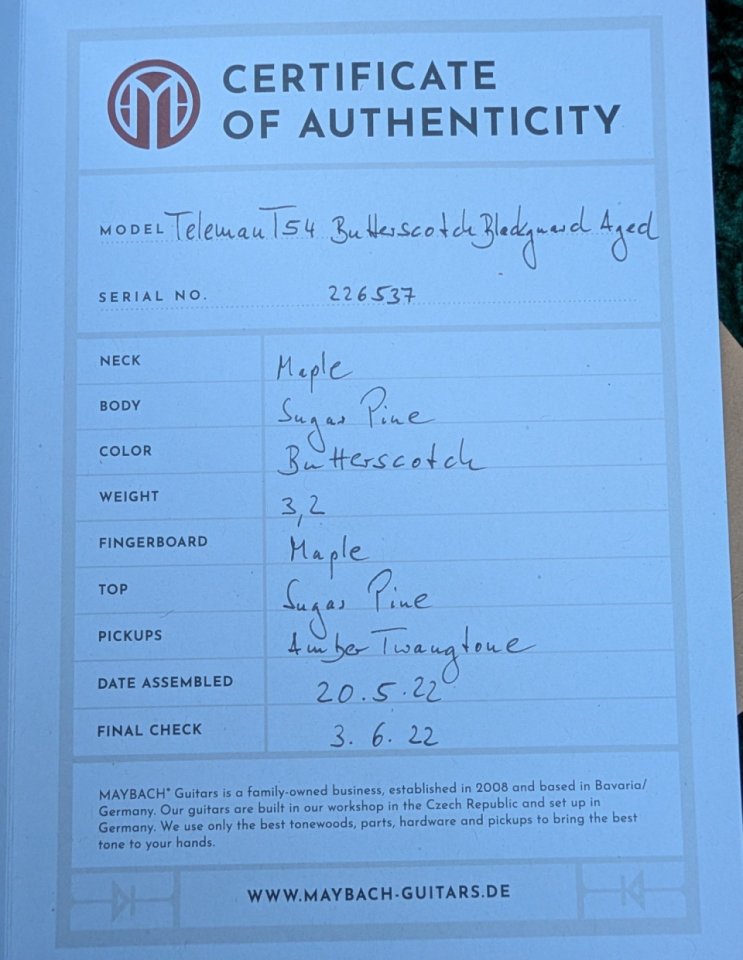 CERTIFICATE
OF AUTHENTICITY
MODEL Teleman T54 Butterscotch Blackguard Aged
SERIAL NO. 226537
NECK Maple
BODY Sugar Pine
COLOR Butterscotch
WEIGHT 3,2
FINGERBOARD Maple
TOP Sugar Pine
PICKUPS Amber Twangtone
DATE ASSEMBLED 20.5.22
FINAL CHECK 3. 6. 22
MAYBACH® Guitars is a family-owned business, established in 2008 and based in Bavaria/
Germany. Our guitars are built in our workshop in the Czech Republic and set up in
Germany. We use only the best tonewoods, parts, hardware and pickups to bring the best
tone to your hands.
WWW.MAYBACH-GUITARS.DE